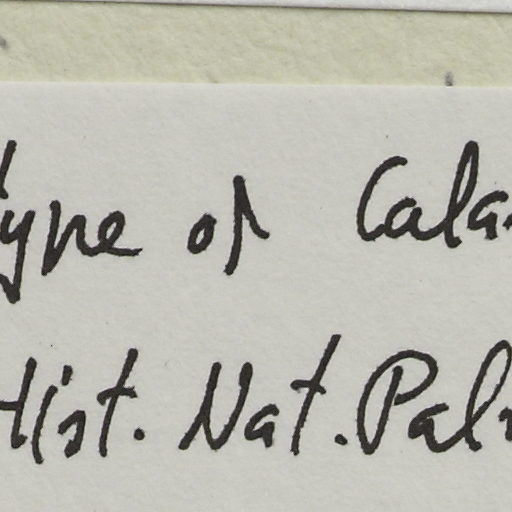 type of Cala
Hist. Nat. Pal